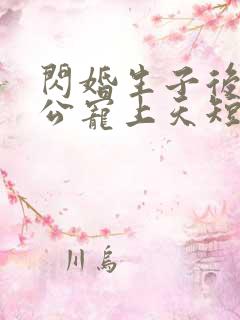 閃婚生子後
公寵上天短
川烏